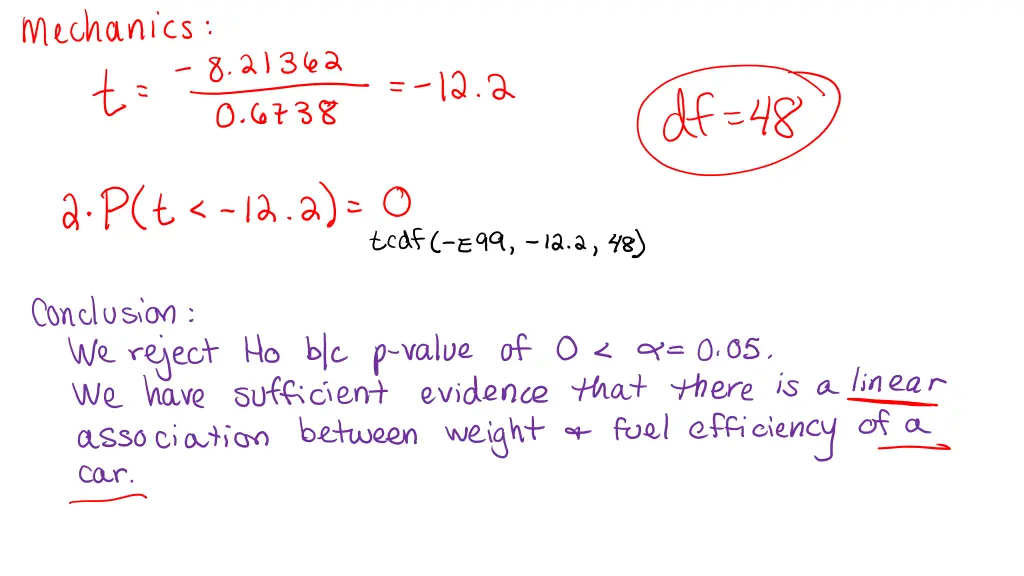 Mechanics:
t = -8.21362 / 0.6738 = -12.2
df = 48
2·P(t < -12.2) = 0
tcdf(-E99, -12.2, 48)
Conclusion:
We reject Ho b/c p-value of 0 < α = 0.05.
We have sufficient evidence that there is a linear
association between weight & fuel efficiency of a
car.